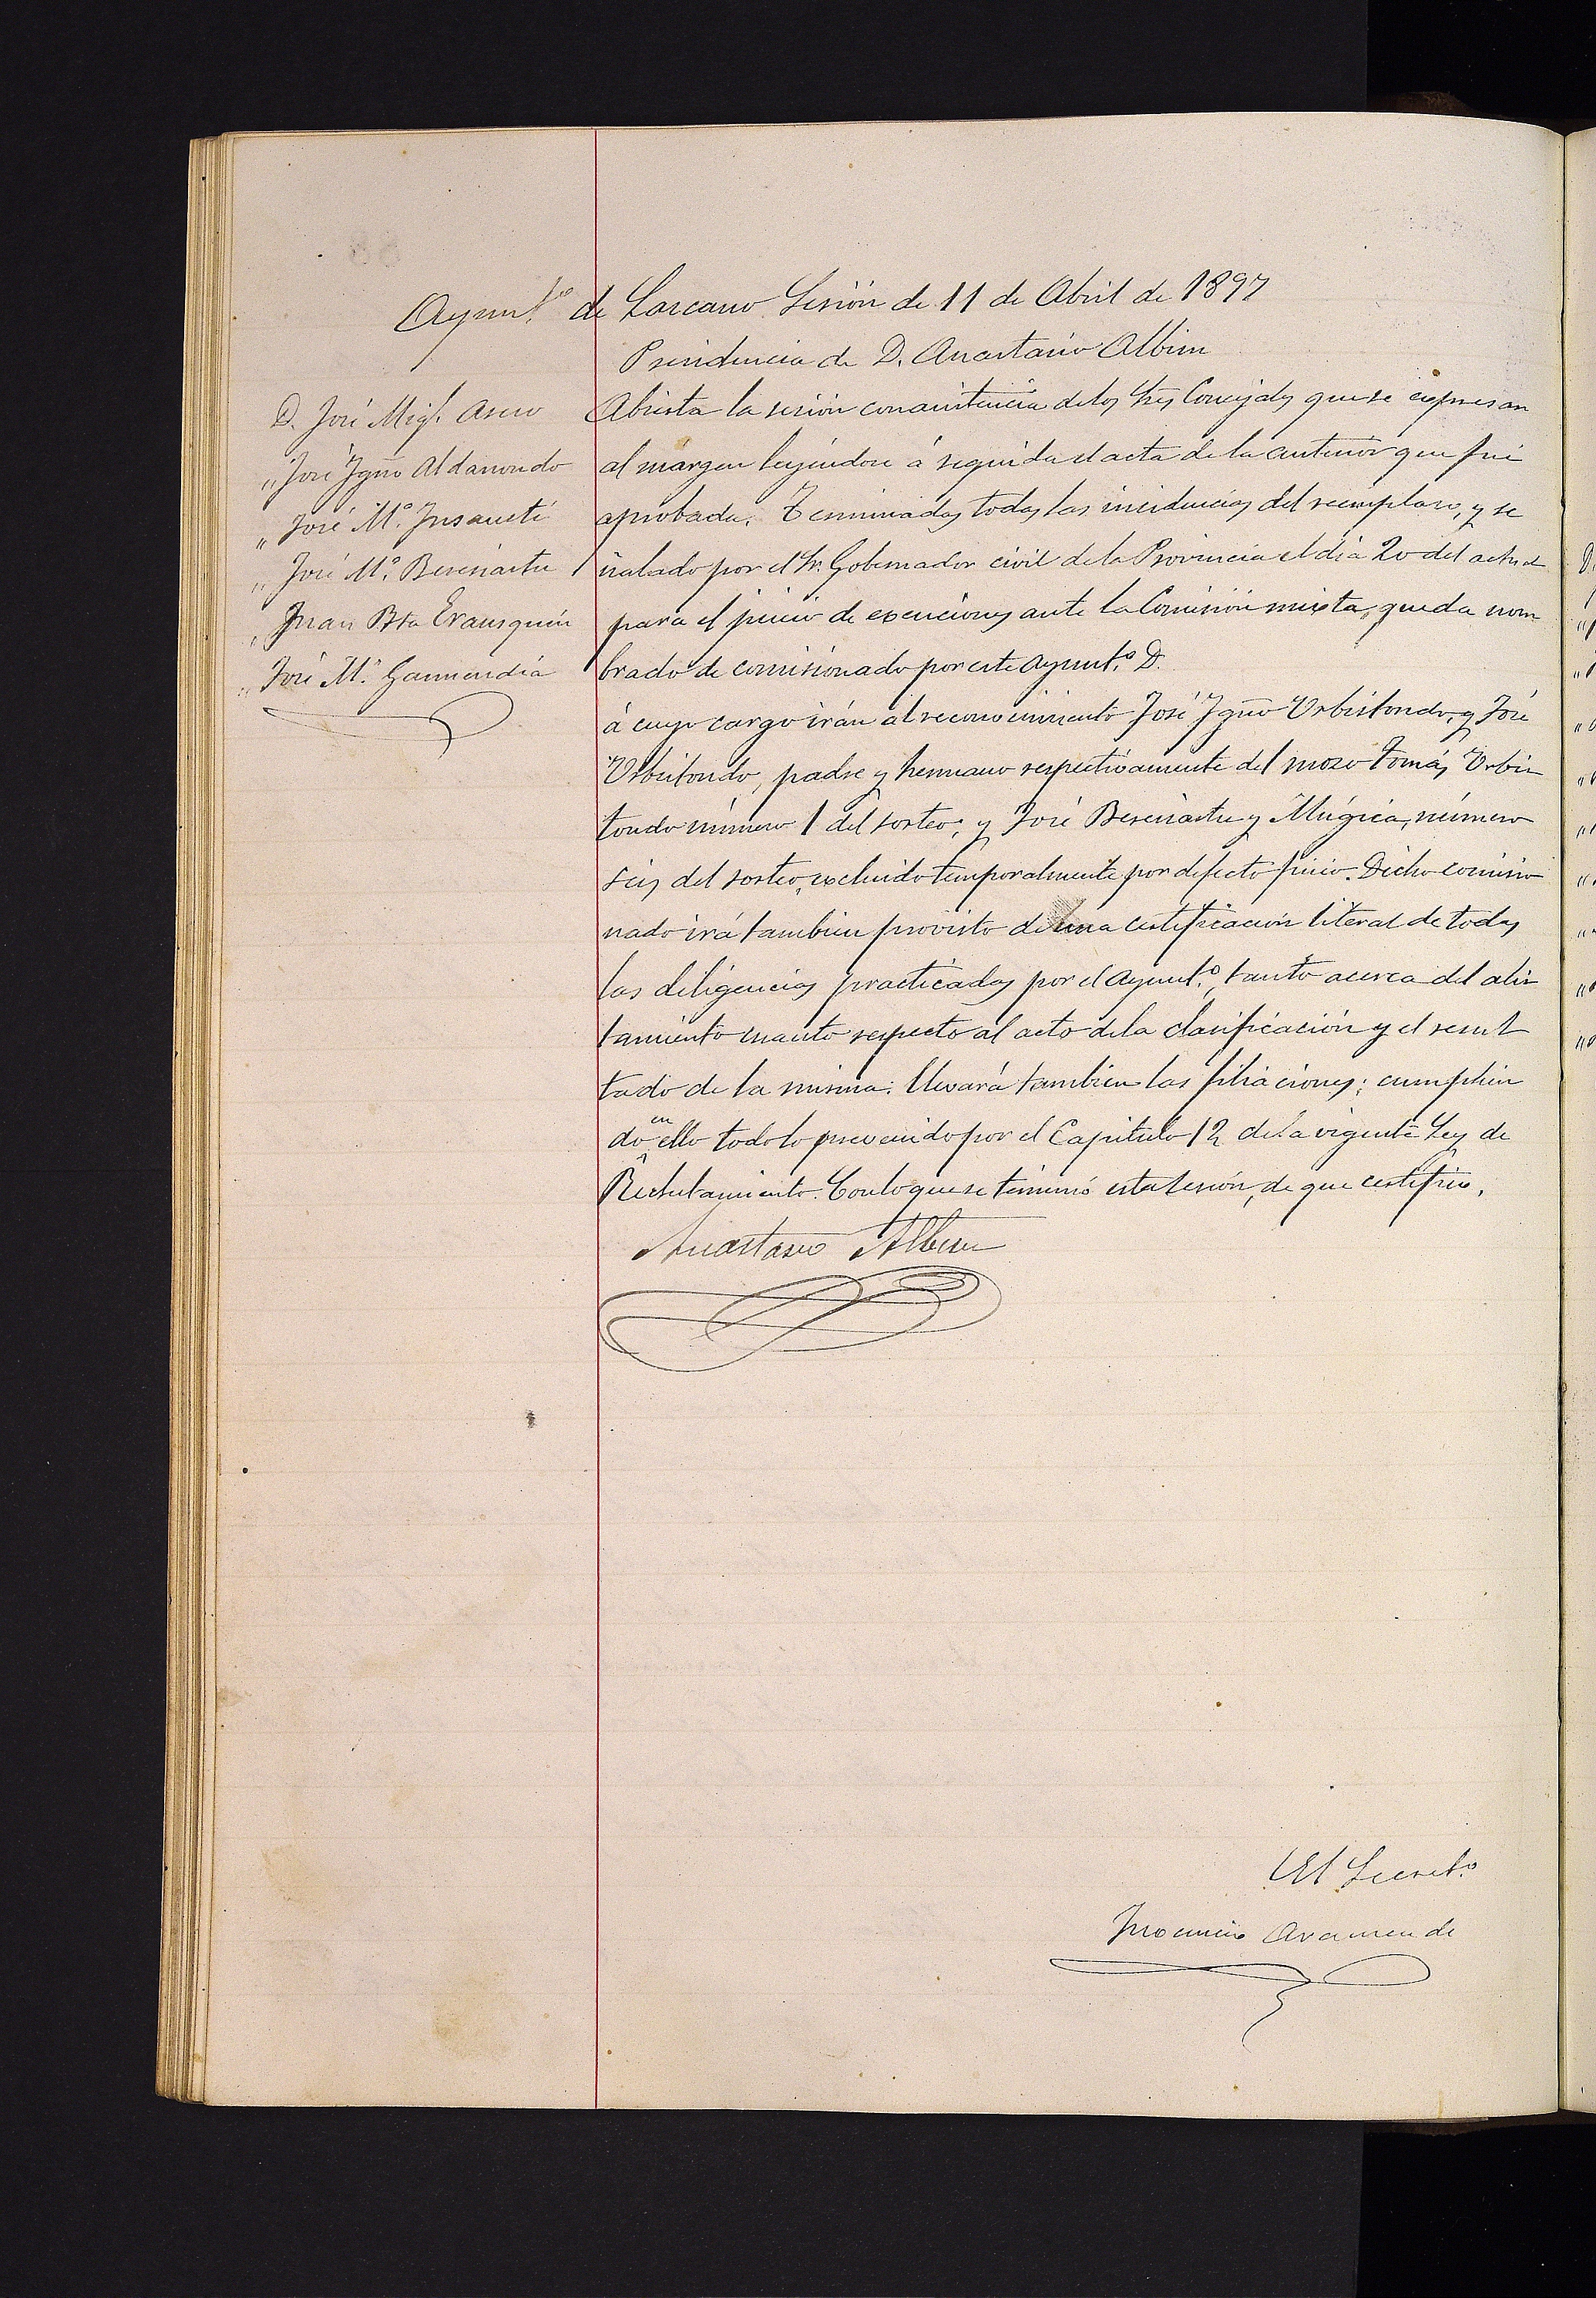 Ayunt.º de Lazcano Sesión de 11 de Abril de 1897
Presidencia de D. Anastasio Albisu
D. José Mig.l Asero
" José Ygno Aldanondo
" José M.ª Insausti
" José M.ª Bereciartu
" Juan Bta Erausquin
" José M.ª Garmendia
Abierta la sesión con asistencia de los Sres Concejales que se expresan
al márgen leyéndose á seguida el acta de la anterior que fué
aprobada. Terminadas todas las incidencias del reemplazo, y se
ñalado por el Sr. Gobernador civil de la Provincia el día 20 del actual
para el juicio de exenciones ante la Comisión mixta, queda nom
brado de comisionado por este Ayunt.º D.
á cuyo cargo irán al reconocimiento José Ygño Urbistondo, y José
Urbistondo, padre y hermano respectivamente del mozo Tomás Urbis
tondo número 1 del sorteo; y José Bereciartu y Múgica, número
seis del sorteo, excluido temporalmente por defecto físico. Dicho comisio
nado irá tambien provisto de una certificación literal de todas
las diligencias practicadas por el Ayunt.º, tanto acerca del alis
tamiento cuanto respecto al acto de la clasificación y el resul
tado de la misma: llevará tambien las filiaciones; cumplien
do en ello todo lo prevenido por el Capítulo 12 de la vigente Ley de
Reclutamiento. Con lo que se terminó esta sesión, de que certifico.
Anastasio Albisu
El Secret.º
Inocencio Aramendi